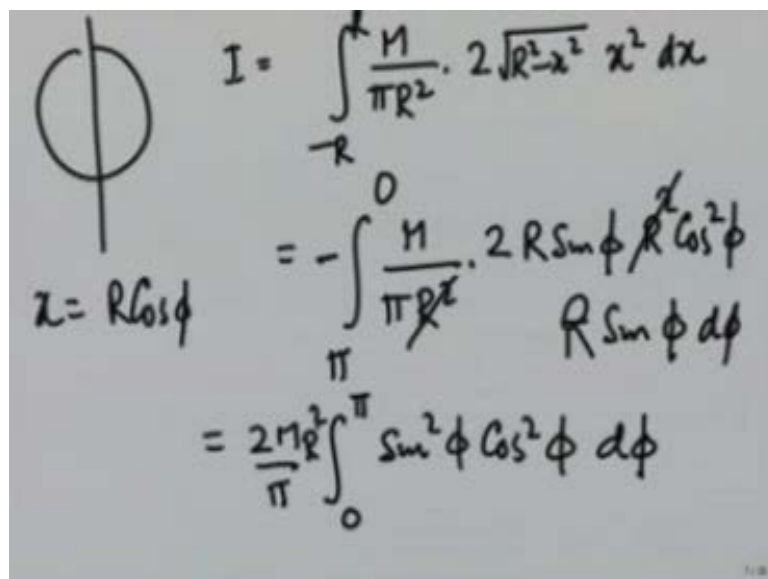 I = ∫_{-R}^{R} M/(πR²) · 2√(R²-x²) x² dx
= - ∫_{π}^{0} M/(πR²) · 2 R Sin ϕ R² Cos² ϕ
x = R Cos ϕ
R Sin ϕ dϕ
= 2MR²/π ∫_{0}^{π} Sin² ϕ Cos² ϕ dϕ